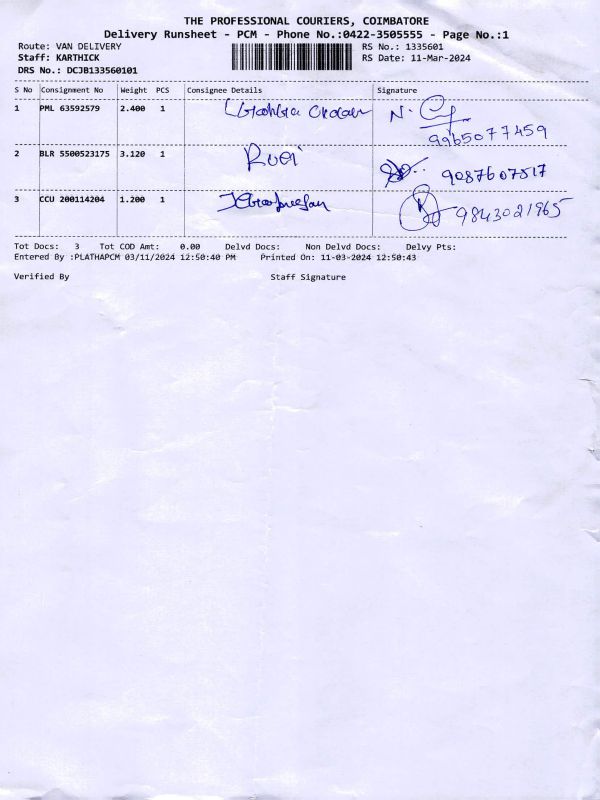 THE PROFESSIONAL COURIERS, COIMBATORE
Delivery Runsheet - PCM - Phone No.:0422-3505555 - Page No.:1
Route: VAN DELIVERY RS No.: 1335601
Staff: KARTHICK RS Date: 11-Mar-2024
DRS No.: DCJB133560101
S No Consignment No Weight PCS Consignee Details Signature
1 PML 63592579 2.400 1 N.
9965077459
2 BLR 5500523175 3.120 1 Ruei
9087607517
3 CCU 200114204 1.200 1 9843021965
Tot Docs: 3 Tot COD Amt: 0.00 Delvd Docs: Non Delvd Docs: Delvy Pts:
Entered By :PLATHAPCM 03/11/2024 12:50:40 PM Printed On: 11-03-2024 12:50:43
Verified By Staff Signature